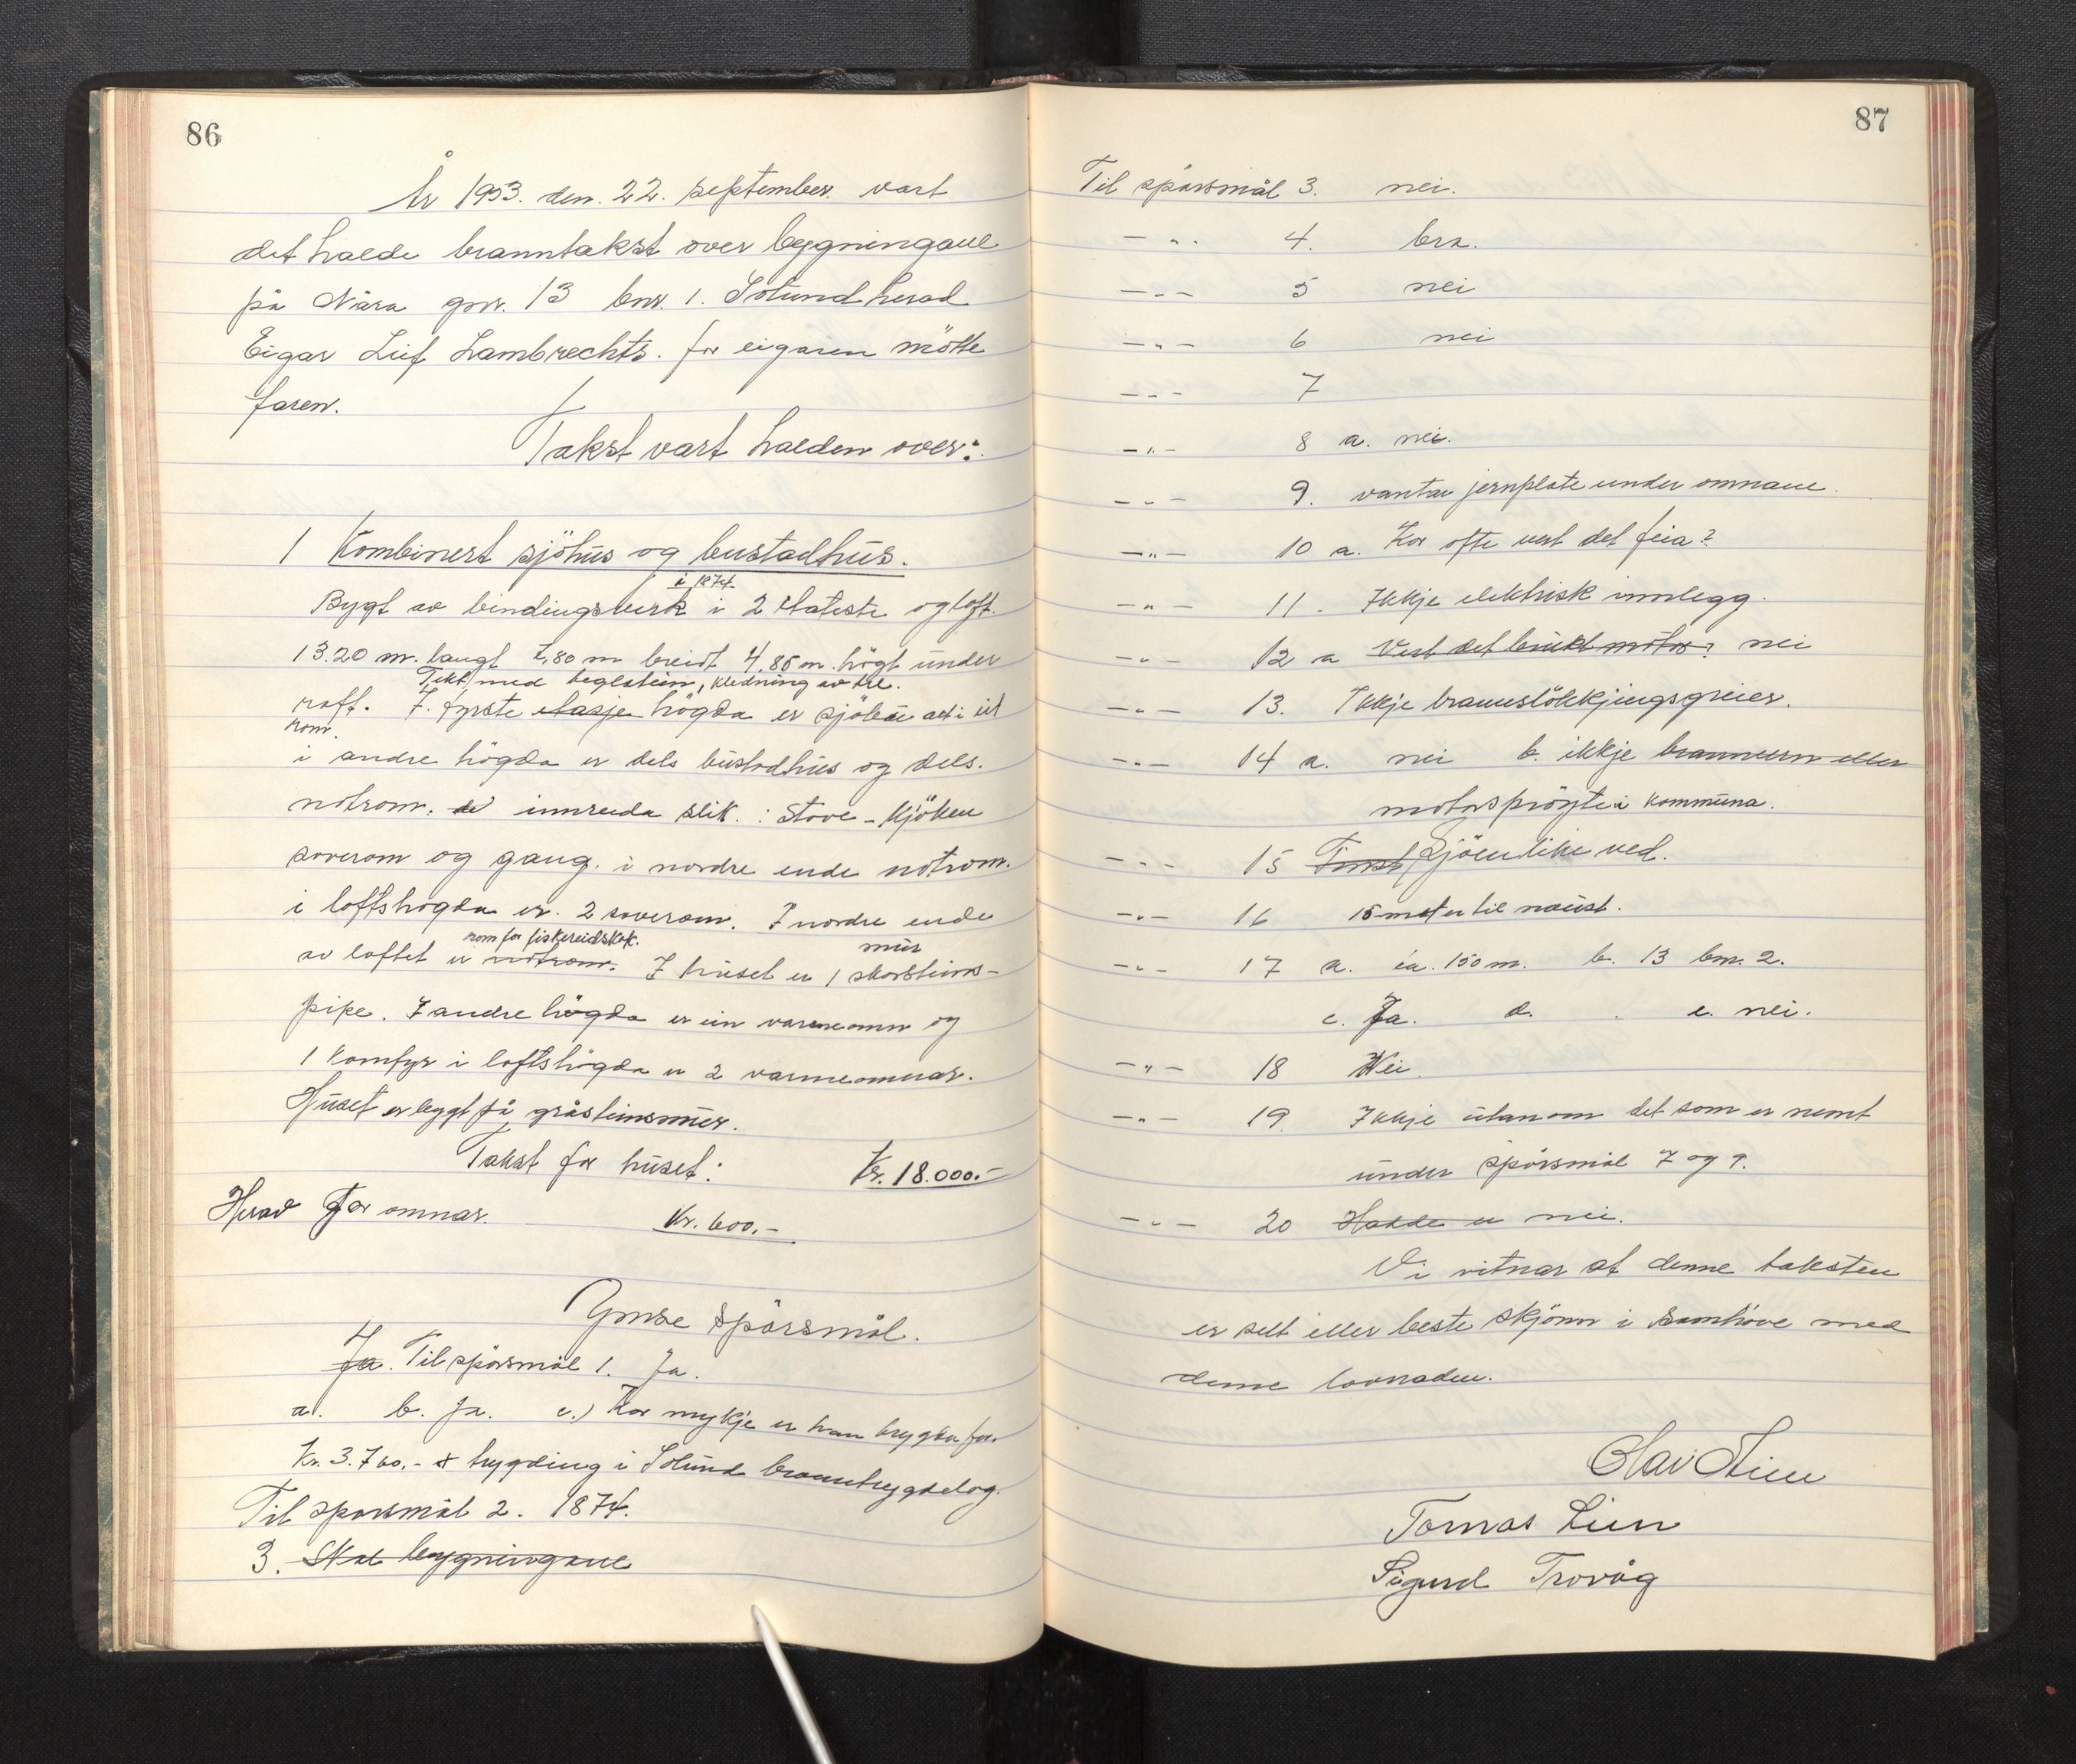 86
År 1953. den. 22. september. vart
det halde branntakst over bygningane
på Nåra gnr. 13 bnr. 1. Solund herad
Eigar Leif Lambrechts. for eigaren mötte
faren.
Takst vart halden over:
1 Kombinert sjöhus og bustadhus.
i 1874.
Bygt av bindingsverk i 2 etasjer og loft.
13.20 m. langt 7,80 m breidt 4.85 m. högt under
Tekt med teglstein, kledning av tre.
raft. I fyrste etasje högda er sjöbu alt i eit
rom.
i andre högda er dels bustadhus og dels.
notrom. innreida slik. : Stove - kjöken
soverom og gang. i nordre ende notrom.
i loftshögda er. 2 soverom. I nordre ende
rom for fiskereidskap. mur
av loftet er notrom. I huset er 1 skorsteins-
pipe. I andre högda er ein varmeomn og
1 komfyr i loftshögda er 2 varmeomnar.
Huset er bygt på gråsteinsmur.
Takst for huset: Kr. 18.000.-
Herav for omnar. Kr. 600.-
Ymse spörsmål.
Ja. Til spörsmål 1. Ja.
a. b. Ja. c.) Kor mykje er han trygda for.
Kr. 3.760.- trygding i Solund branntrygdelag.
Til spörsmål 2. 1874.
3. Skal bygningane
87
Til spörsmål 3. nei.
- " - 4. bra.
- " - 5 nei
- " - 6 nei
- " - 7
- " - 8 a. nei.
- " - 9. vantar jernplate under omnane.
- " - 10 a. Kor ofte vert det feia?
- " - 11. Ikkje elektrisk innlegg.
- " - 12 a Vert det brukt motor? nei
- " - 13. Ikkje brannslökkjingsgreier.
- " - 14 a. nei b. ikkje brannvern eller
motorspröyte i kommuna.
- " - 15 Finst Sjöen like ved.
- " - 16 15 meter til naust.
- " - 17 a. ca. 150 m. b. 13 bnr. 2.
c. Ja. d. . e. nei.
- " - 18 Nei.
- " - 19. Ikkje utanom det som er nemt
under spörsmål 7 og 9.
- " - 20 Hadde er nei.
Vi vitnar at denne taksten
er sett etter beste skjönn i samhöve med
denne lovnaden.
Olav
Tomas Lien
Sigurd Trovåg